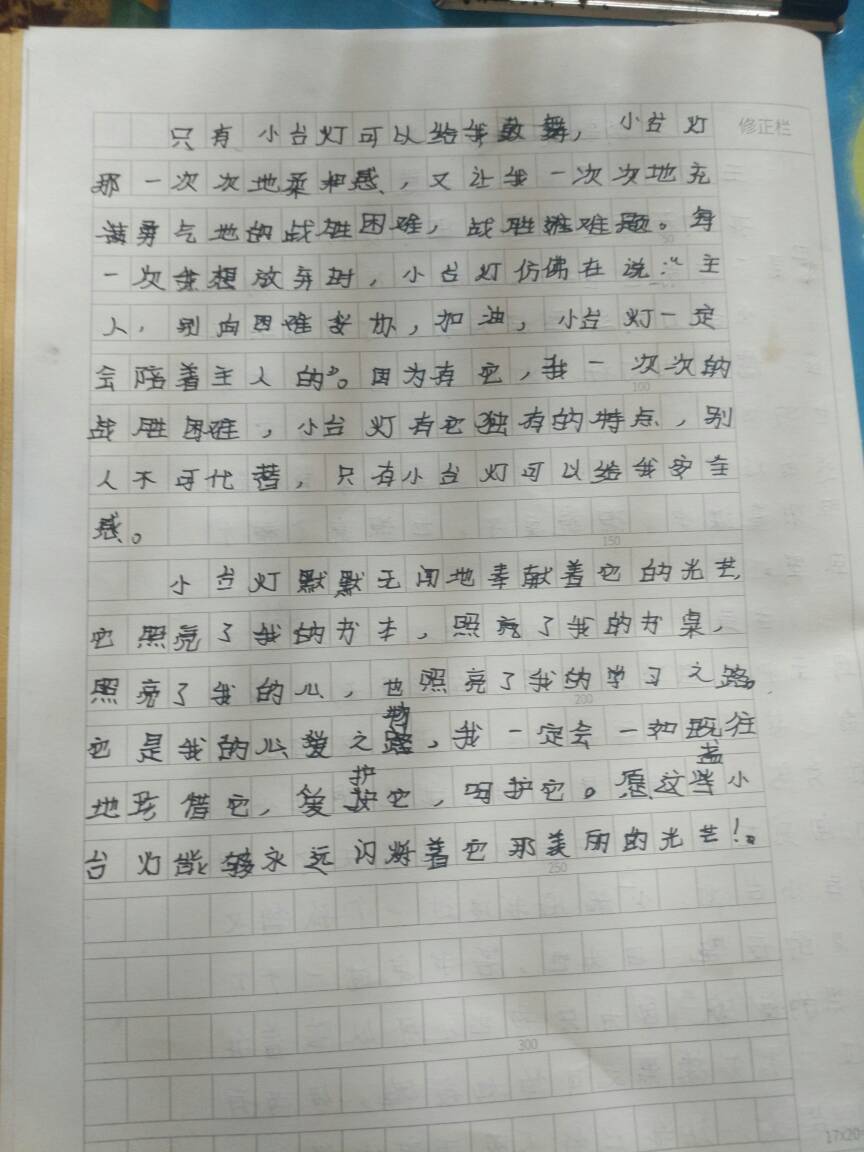 只有小台灯可以给我鼓舞，小台灯
修正栏
那一次次地柔和感，又让我一次次地充
满勇气地的战胜困难，战胜难难题。每
50
一次我想放弃时，小台灯仿佛在说：“主
人，别向困难妥协，加油，小台灯一定
会陪着主人的”。因为有它，我一次次的
100
战胜困难，小台灯有它独有的特点，别
人不可代替，只有小台灯可以给我安全
感。
150
小台灯默默无闻地奉献着它的光芒，
它照亮了我的书本，照亮了我的书桌，
照亮了我的心，也照亮了我的学习之路。
200
它是我的心爱之物，我一定会一如既往
地珍惜它，爱护它，呵护它。愿这盏小
台灯能够永远闪烁着它那美丽的光芒！。
250
300
17x20